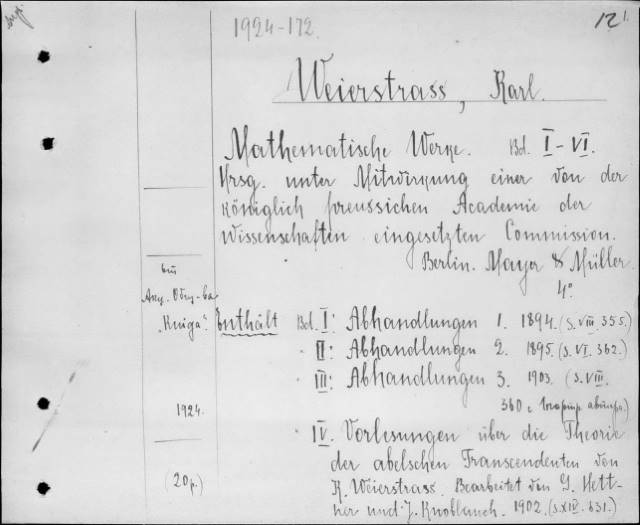 1924-172.
12
Weierstrass, Karl.
Mathematische Werke. Bd. I-VI.
Hrsg. unter Mitwirkung einer von der
königlich preussichen Academie der
Wissenschaften eingesetzten Commission.
Berlin. Mayer & Müller.
4°
Акц. Общ-ва
"Книга".
1924.
(20 р.)
Enthält Bd. I: Abhandlungen 1. 1894. (S. VIII. 355.)
II: Abhandlungen 2. 1895. (S. VI. 362.)
III: Abhandlungen 3. 1903. (S. VIII.
360
IV. Vorlesungen über die Theorie
der abelschen Transcendenten von
K. Weierstrass. Bearbeitet von G. Hett-
ner und J. Knoblauch. 1902. (S. XIV. 631.)